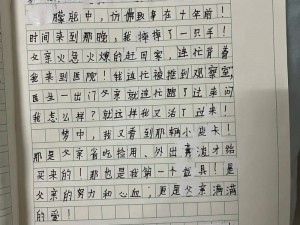 朦胧中，仿佛取身在十年前！
时间来到那晚，我摔掉了一只手！
父亲火急火燎的赶回家，连忙背着
我来到医院！我连忙被推到观察室，
医生一出门父亲就连忙蹲了过来问
我怎么样？就这样我又活了过来！
梦中，我又看到那辆小皮卡！
那是父亲省吃俭用、外出奔波才给
买来的！那也是我第一个玩具！是
父亲的努力和心血，更是父亲满满
的爱！